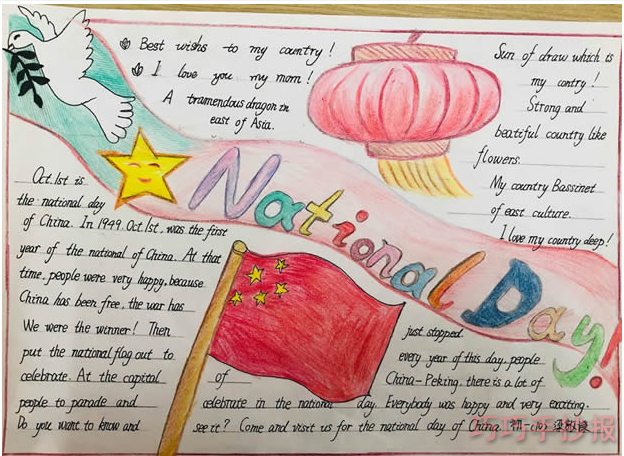 Best wishs to my country!
I love you my mom!
A tramendous dragon in
east of Asia.
Sun of draw which is
my contry!
Strong and
beatiful country like
flowers.
My country Bassinet
of east culture.
I love my country deep!
National Day!
Oct.1st is
the national day
of China. In 1949. Oct.1st. was the first
year of the national of China. At that
time, people were very happy, because
China has been free, the war has just stopped.
We were the winner! Then every year of this day, people
put the national flag out to
celebrate. At the capital of China-Peking, there is a lot of
people to parade and celebrate in the national day. Everybody was happy and very exciting.
Do you want to know and see it? Come and visit us for the national day of China.
巧巧手抄报